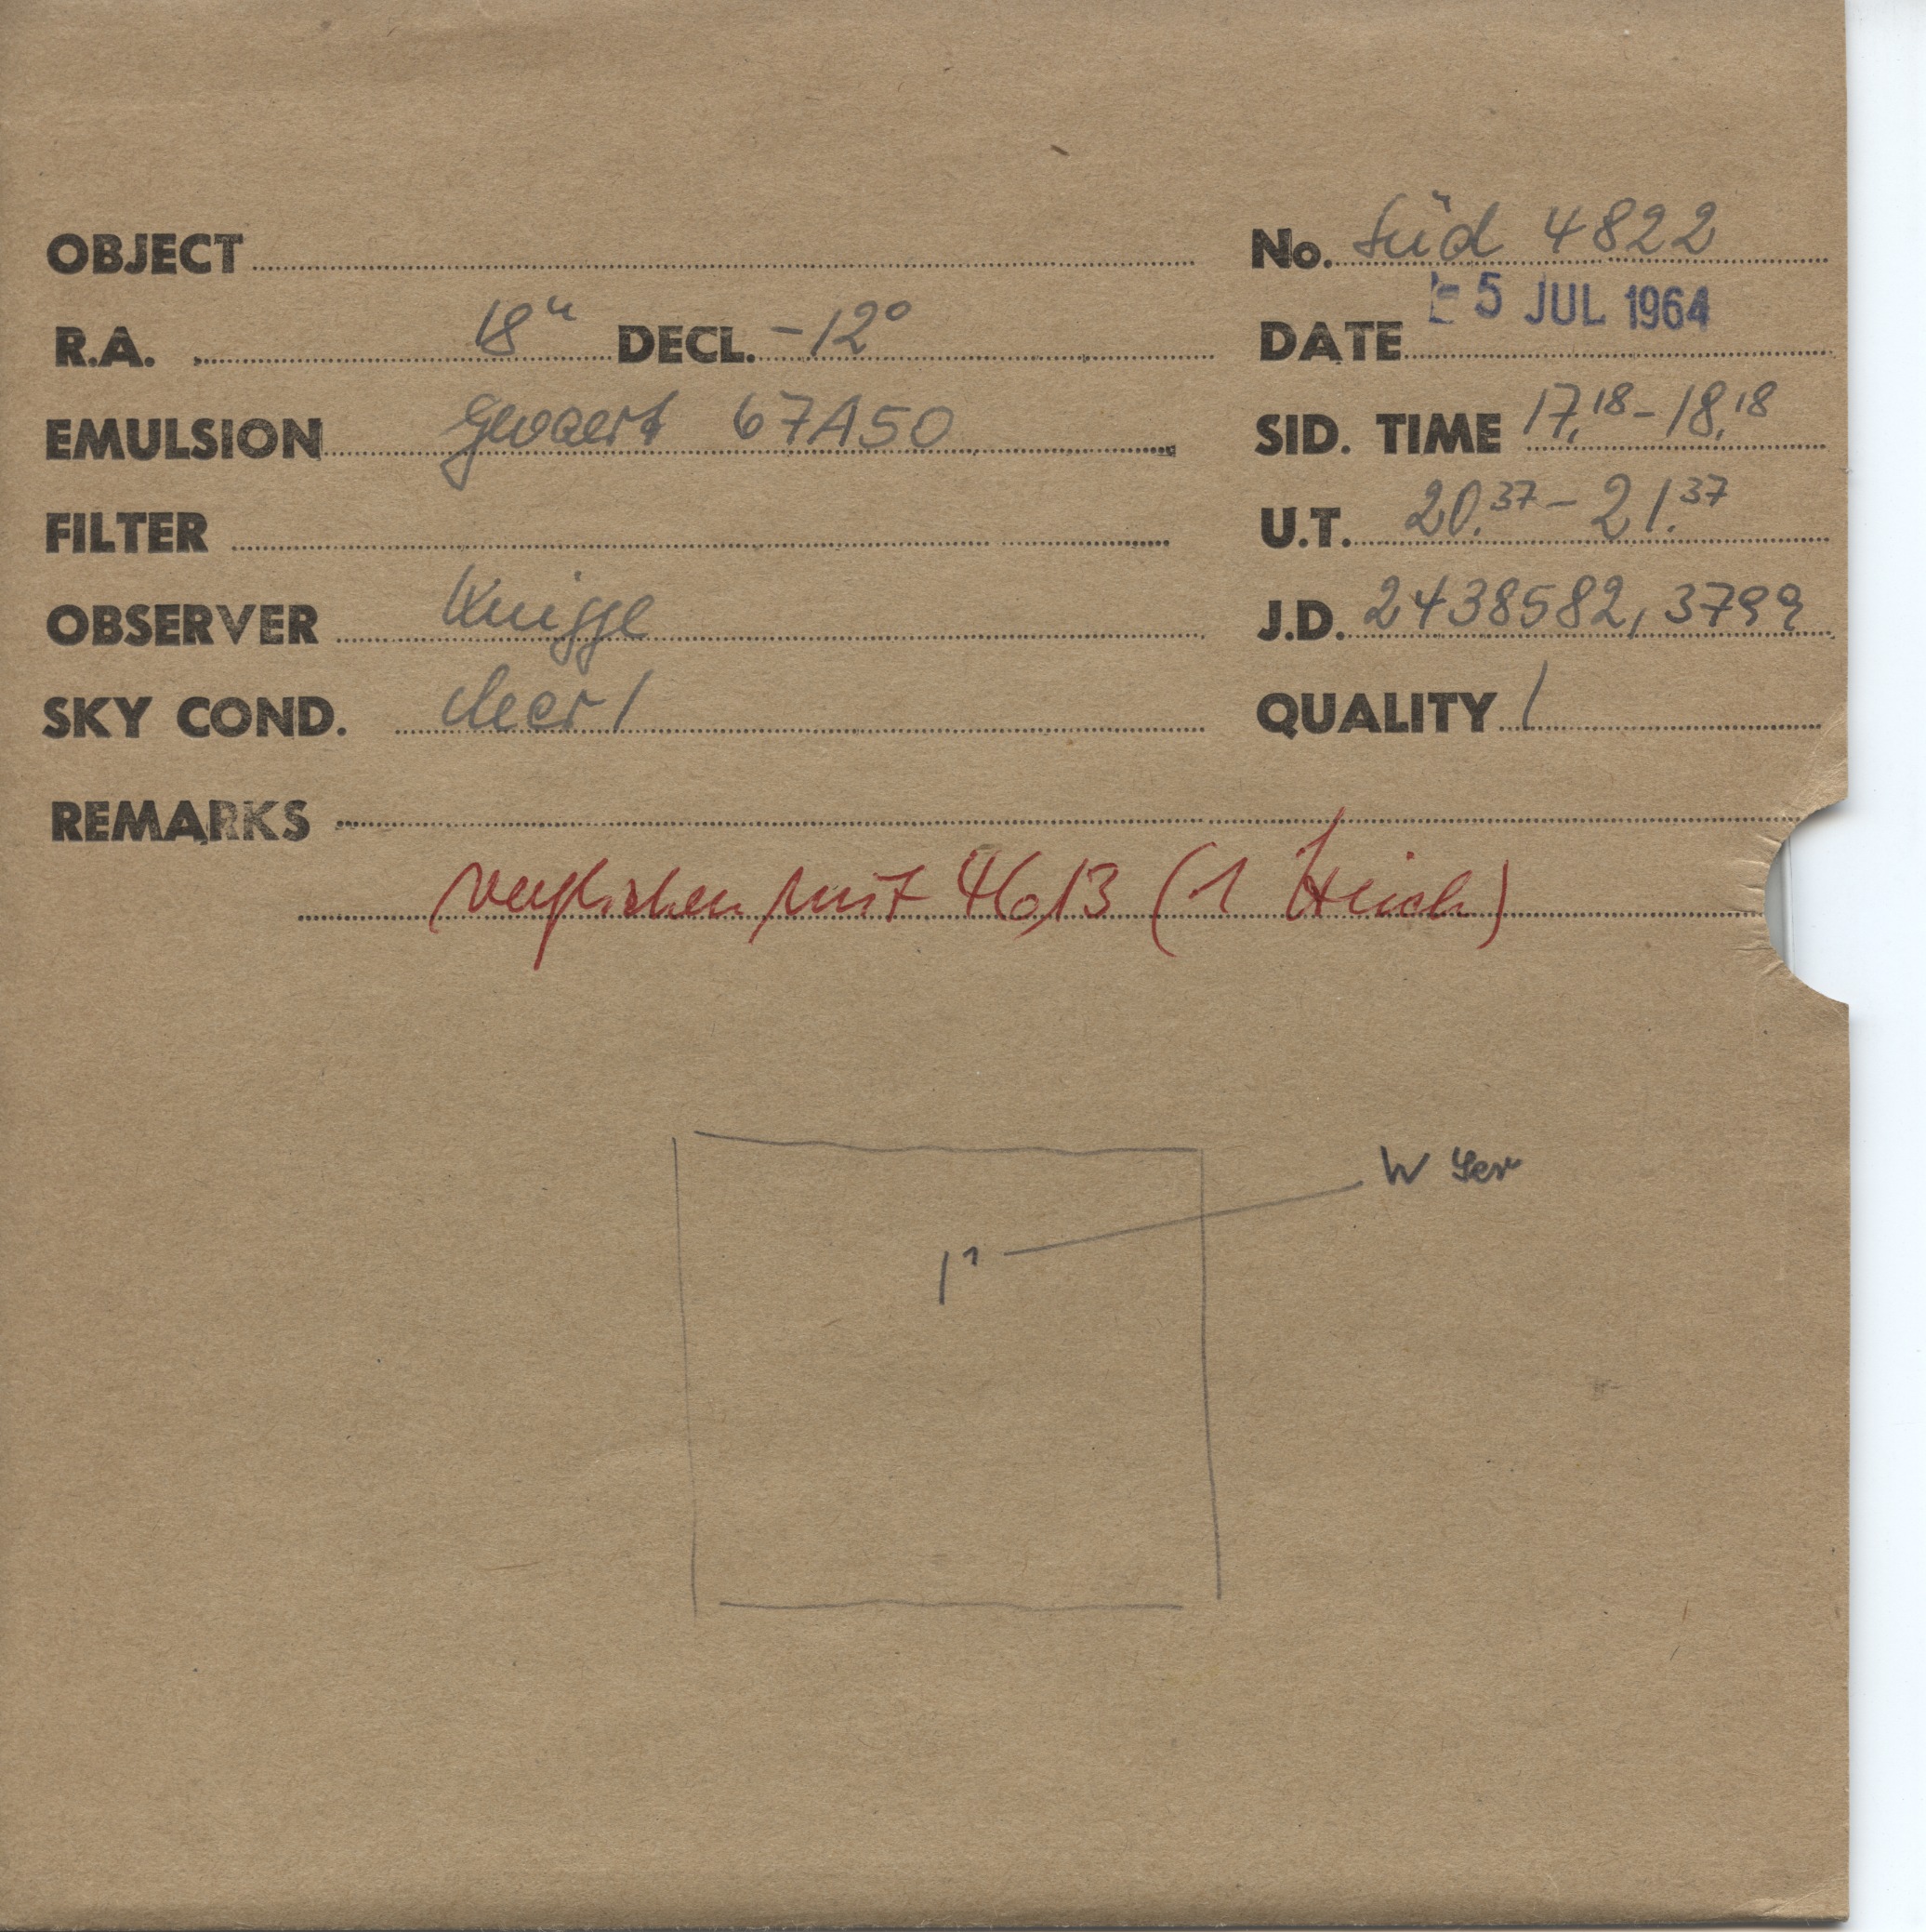 OBJECT
No. Süd 4822
R.A. 18h DECL. -12°
DATE 5 JUL 1964
EMULSION Gevaert 67A50
SID. TIME 17.18 - 18.18
FILTER
U.T. 20.37 - 21.37
OBSERVER Knigge
J.D. 2438582,3799
SKY COND. clear 1
QUALITY 1
REMARKS
verglichen mit 4613 (1 Strich)
W Ser
1